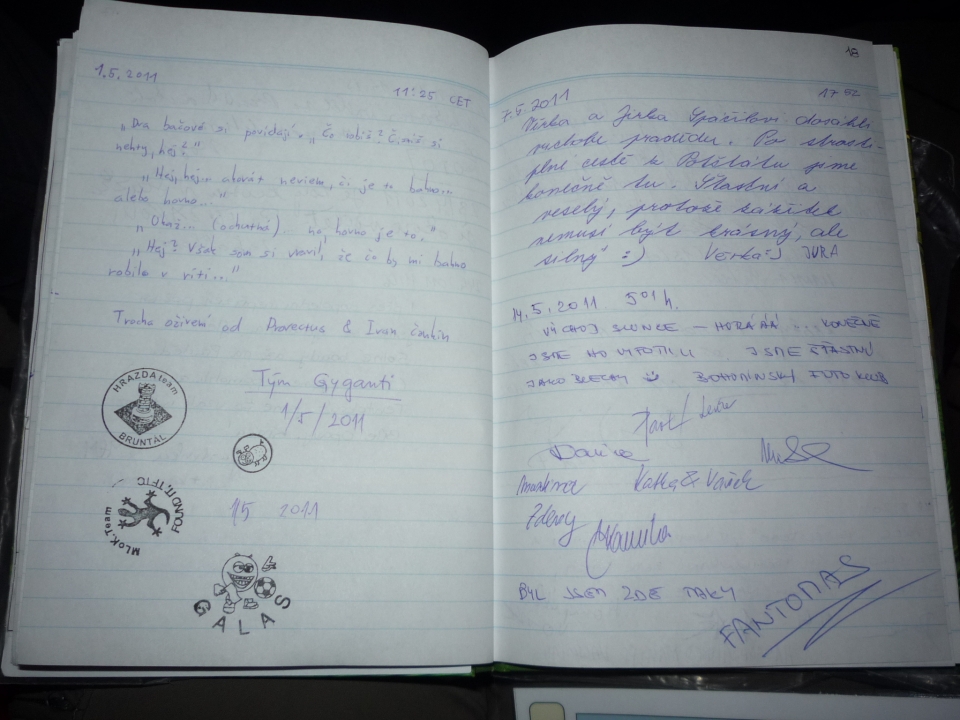 1.5.2011
11:25 CET
„Dva bačové si povídajú. „Čo robíš? Čítaš si
nehry, hej?"
„Hej, hej... akorát neviem, či je to bahno...
alebo hovno..."
„Ukaž... (ochutná). no, hovno je to."
„Hej? Však som si vravil, že čo by mi bahno
robilo v riti..."
Trocha oživení od Provectus & Ivan
Tým Gyganti
1/5/2011
HRAZDA team
BRUNTÁL
MLOK.Team
FOUND IT, TFTC
1/5 2011
GALAS
18
7.5.2011
17 52
Věrka a Jirka Špačkovi dosáhli
Po strasti
plné cestě k jsme
konečně tu. Šťastní a
veselý, protože zážitek
nemusí být krásný, ale
silný :) Verka :) JURA
14.5.2011 5 01 h.
VÝCHOD SLUNCE – HORÁÁÁ ... KONEČNĚ
JSME HO JSME ŠŤASTNÍ
JAKO BLECHY BOHUMÍNSKÝ FOTO KLUB
Danča
Martina Katka & Vašek
Zdeney
Kamila
BYL JSEM ZDE TAKY
FANTOMAS